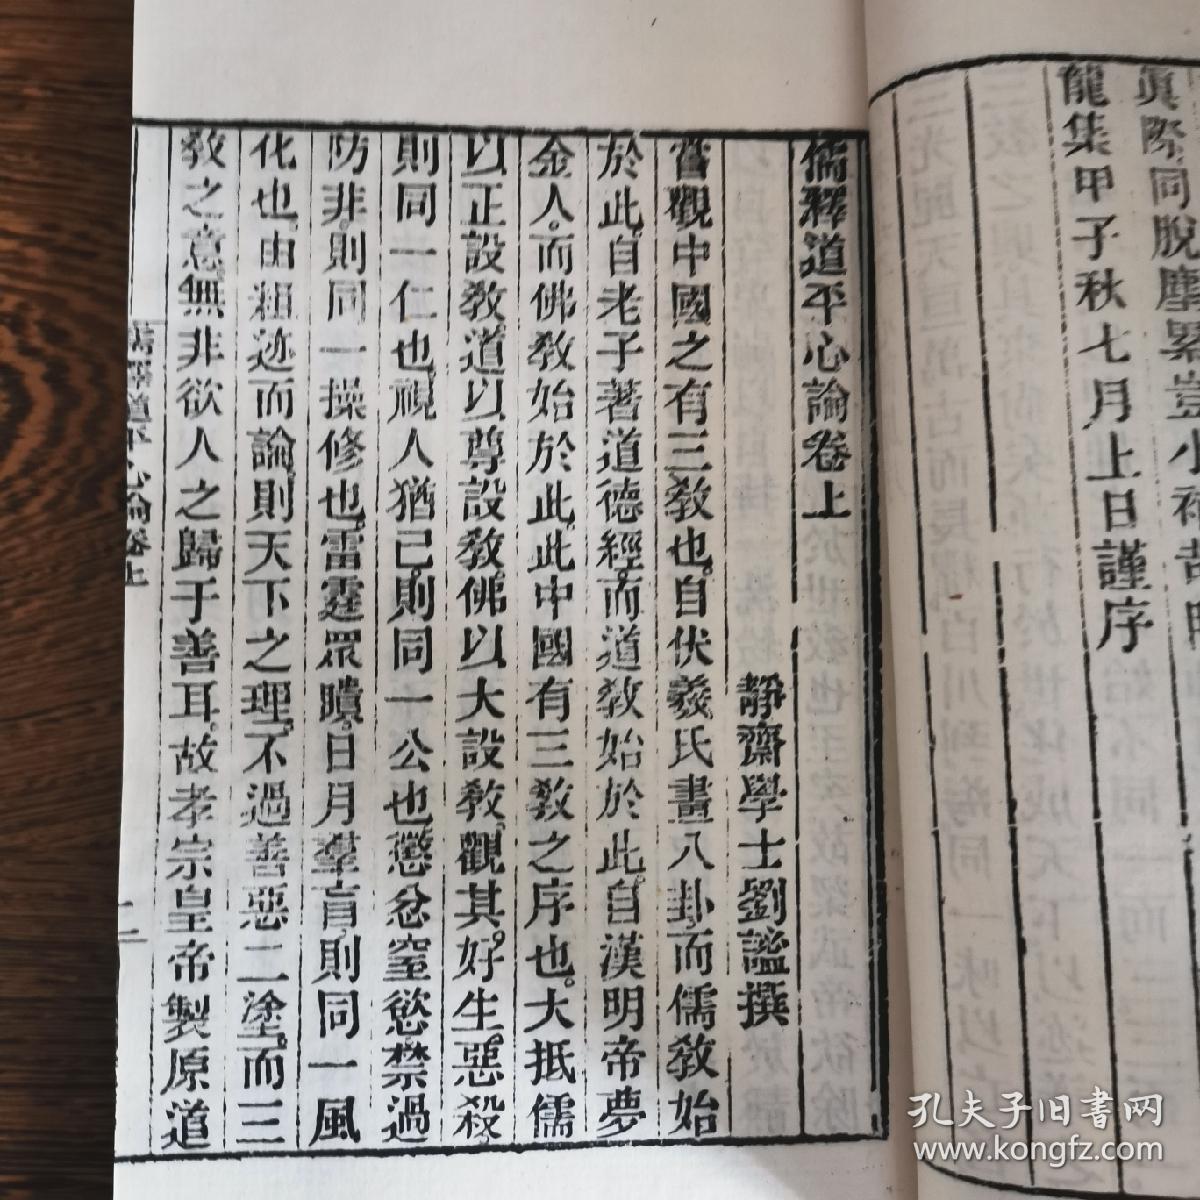 眞際同脫塵累豈小補哉時
龍集甲子秋七月上日謹序
儒釋道平心論卷上
靜齋學士劉謐撰
嘗觀中國之有三敎也自伏羲氏畫八卦而儒敎始
於此自老子著道德經而道敎始於此自漢明帝夢
金人而佛敎始於此此中國有三敎之序也大抵儒
以正設敎道以尊設敎佛以大設敎觀其好生惡殺
則同一仁也視人猶己則同一公也懲忿窒慾禁過
防非則同一操修也雷霆眾聵日月羣盲則同一風
化也由粗迹而論則天下之理不過善惡二塗而三
敎之意無非欲人之歸于善耳故孝宗皇帝製原道
儒釋道平心論卷上
二
孔夫子旧书网
www.kongfz.com